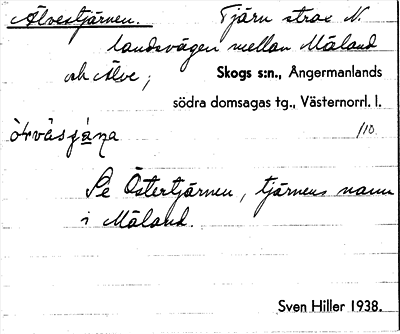 Älvestjärnen. Tjärn strax N.
landsvägen mellan Mäland
och Älve; Skogs s:n., Ångermanlands
södra domsagas tg., Västernorrl. l.
1/10
Se Östertjärnen, tjärnens namn
i Mäland.
Sven Hiller 1938.